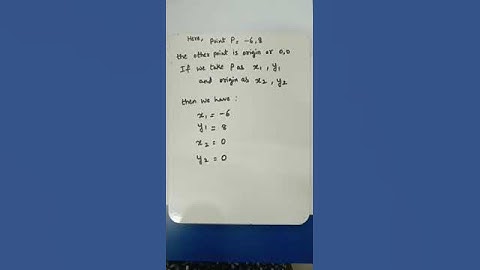 Here, Point P, -6,8
the other point is origin or 0,0
If we take P as x1, y1
and origin as x2, y2
then we have:
x1 = -6
y1 = 8
x2 = 0
y2 = 0